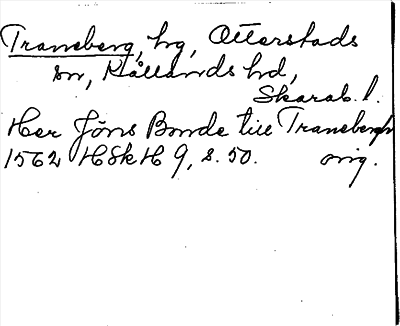 Traneberg, hg, Otterstads
sn, Kållands hd,
Skarab. l.
Her Jöns Bonde till Tranebergh
1562 HSkH 9, s. 50. orig.